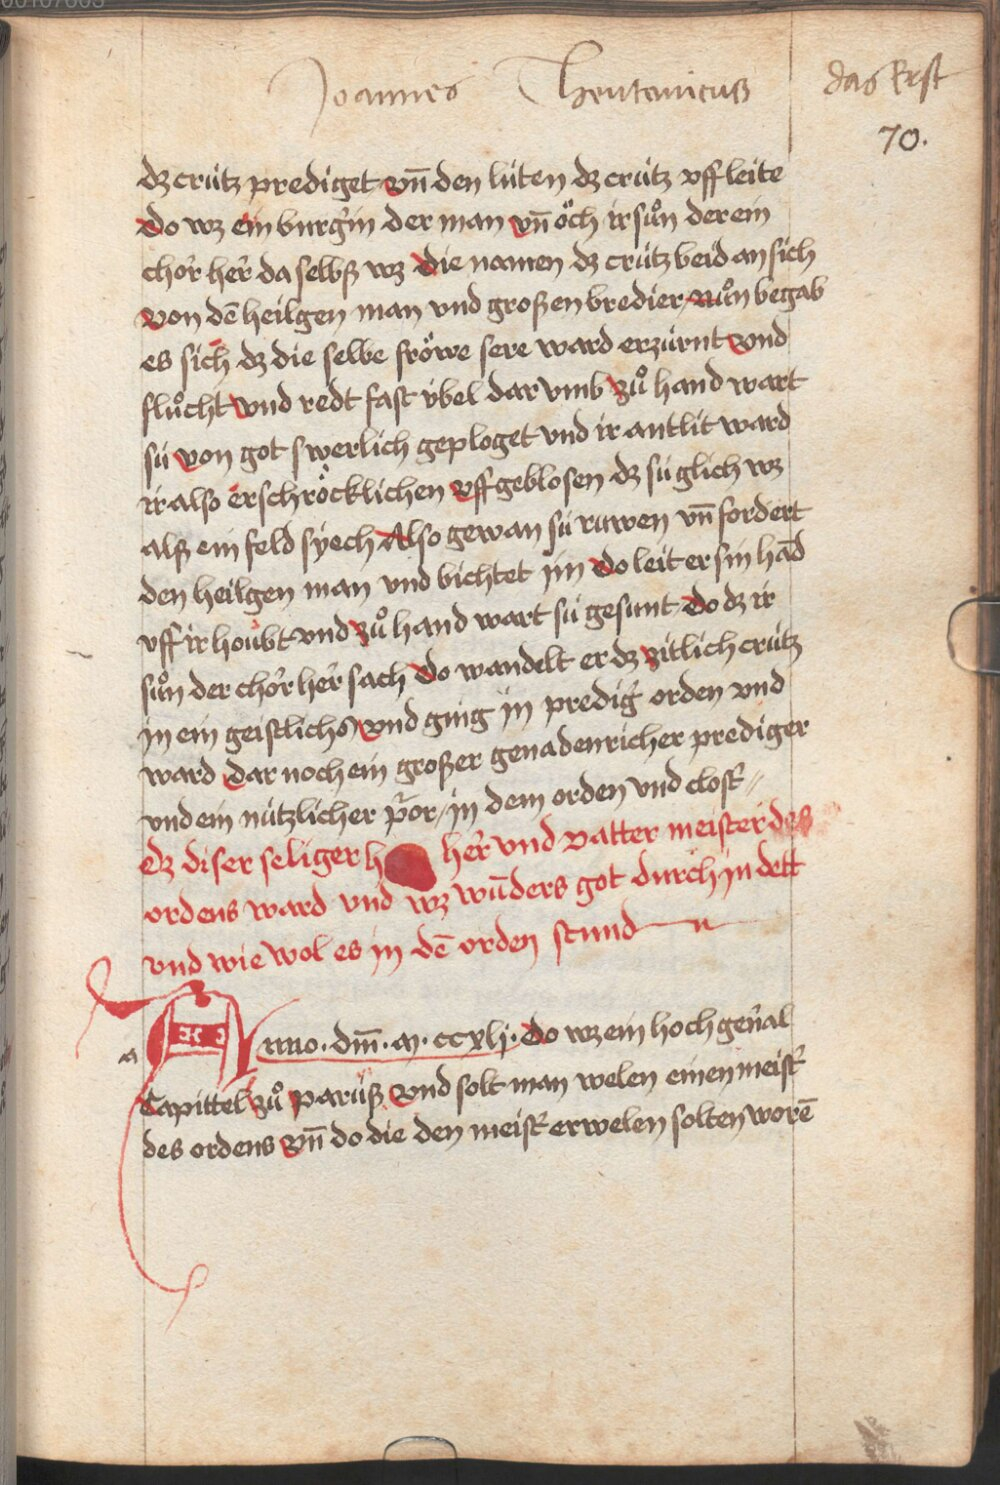 Joannes Theutonicus
das Erst
70.
dz crütz prediget vn̄ den lüten dz crütz vff leite
Do wz ein burg̃in der man vn̄ öch ir sůn der ein
chor her̃ da selbß wz Die namen dz crütz beid an sich
von dē heilgen man vnd großen bredier Nůn begab
es sich dz die selbe fröwe sere ward erzürnt vnd
flůcht vnd redt fast vbel dar vmb zů hand wart
sü von got swerlich geploget vnd ir antlit ward
ir also erschröcklichen vff geblosen dz sü glich wz
alß ein feld syech Also gewan sü ruwen vn̄ fordert
den heilgen man vnd bichtet jm Do leit er sin hād
vff ir houbt vnd zů hand wart sü gesunt Do dz ir
sůn der chor her̃ sach Do wandelt er dz zitlich crütz
jn ein geistlichs vnd ging jn predig̃ orden vnd
ward dar noch ein großer genadenricher prediger
vnd ein nützlicher p̃or / jn dem orden vnd clost̃ //
dz diser seliger h her̃ vnd vatter meister des
ordens ward vnd wz wūders got durch jn dett
vnd wie wol es in dē orden stund
a
Anno . dm̄ . M . ccxlj . Do wz ein hoch gen̄al
Capittel zů pariß vnd solt man welen einen meist̃
des ordens vn̄ do die den meist̃ erwelen solten worē